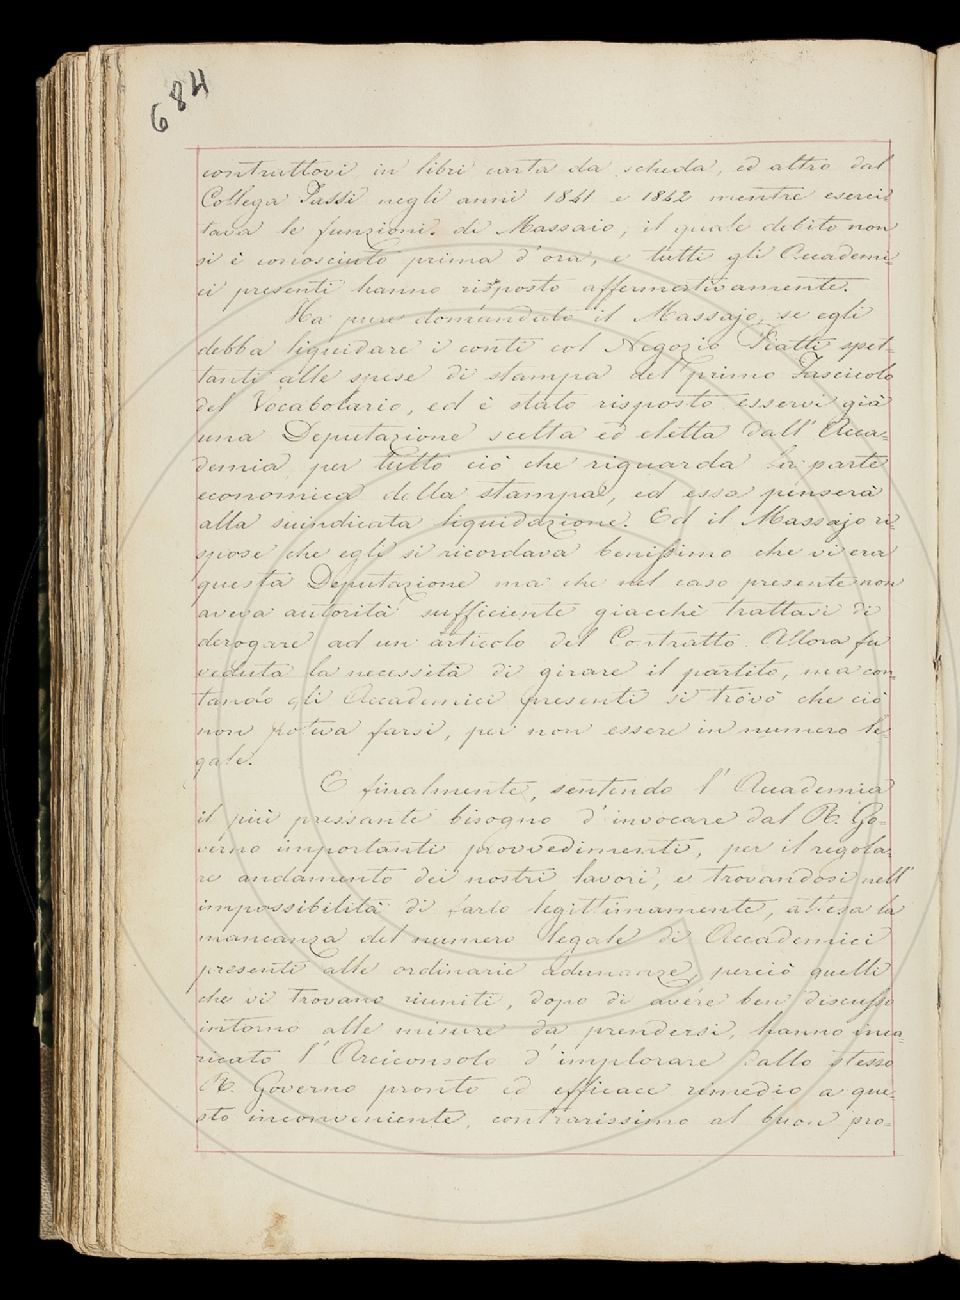 684
contrattovi in libri carta da scheda, ed altro dal
Collega Tassi negli anni 1841 e 1842 mentre eserci
tava le funzioni di Massaio, il quale debito non
si è conosciuto prima d'ora, e tutti gli Accademi=
ci presenti hanno risposto affermativamente.
Ha pure domandato il Massajo, se egli
debba liquidare i conti col Negozio Piatti spet=
tanti alle spese di stampa del primo Fascicolo
del Vocabolario, ed è stato risposto esservi già
una Deputazione scelta ed eletta dall'Acca=
demia per tutto ciò che riguarda la parte
economica della stampa, ed essa penserà
alla suindicata liquidazione. Ed il Massajo ri=
spose che egli si ricordava benissimo che vi era
questa Deputazione ma che nel caso presente non
aveva autorità sufficiente giacchè trattasi di
derogare ad un articolo del Contratto. Allora fu
veduta la necessità di girare il partito, ma con=
tando gli Accademici presenti si trovò che ciò
non poteva farsi, per non essere in numero le=
gale.
E finalmente, sentendo l'Accademia
il più pressante bisogno d'invocare dal R. Go=
verno importanti provvedimenti, per il regola=
re andamento dei nostri lavori, e trovandosi nell'
impossibilità di farlo legittimamente, attesa la
mancanza del numero legale di Accademici
presenti alle ordinarie adunanze, perciò quelli
che vi trovano riuniti, dopo di avere ben discusso
intorno alle misure da prendersi, hanno inca=
ricato l'Arciconsolo d'implorare dallo stesso
R. Governo pronto ed efficace rimedio a que=
sto inconveniente, contrarissimo al buon pro=